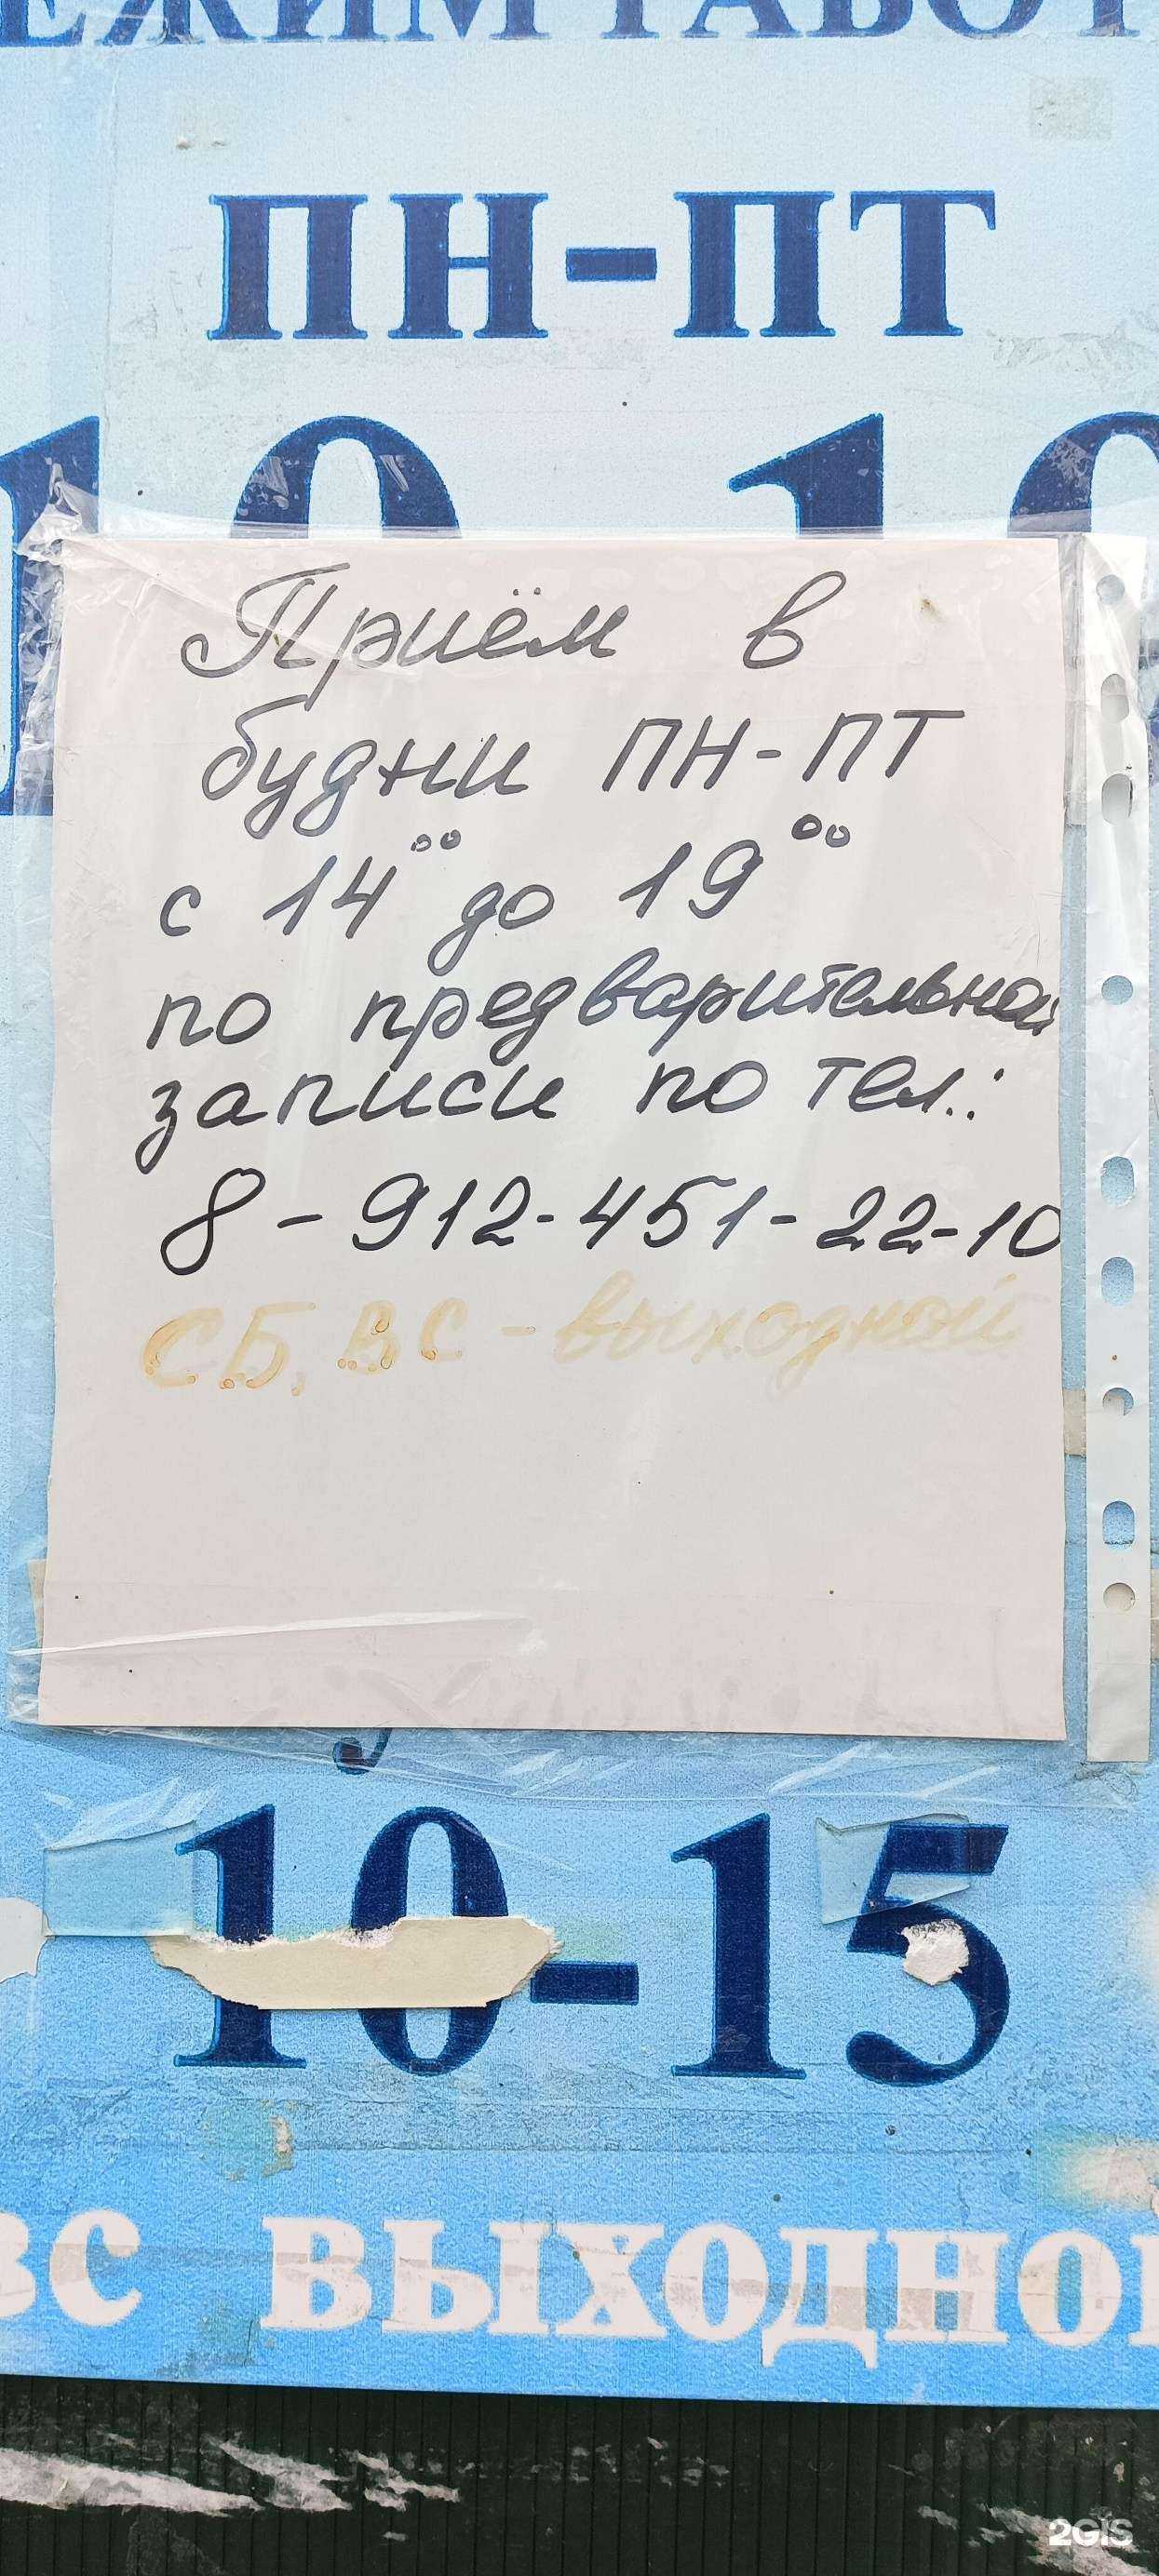 ЕЖИМ РАБОТ
ПН-ПТ
10 10
Приём в
будни ПН-ПТ
с 14⁰⁰ до 19⁰⁰
по предварительной
записи по тел.:
8-912-451-22-10
СБ, ВС - выходной
10-15
ВС ВЫХОДНОЙ
2GIS